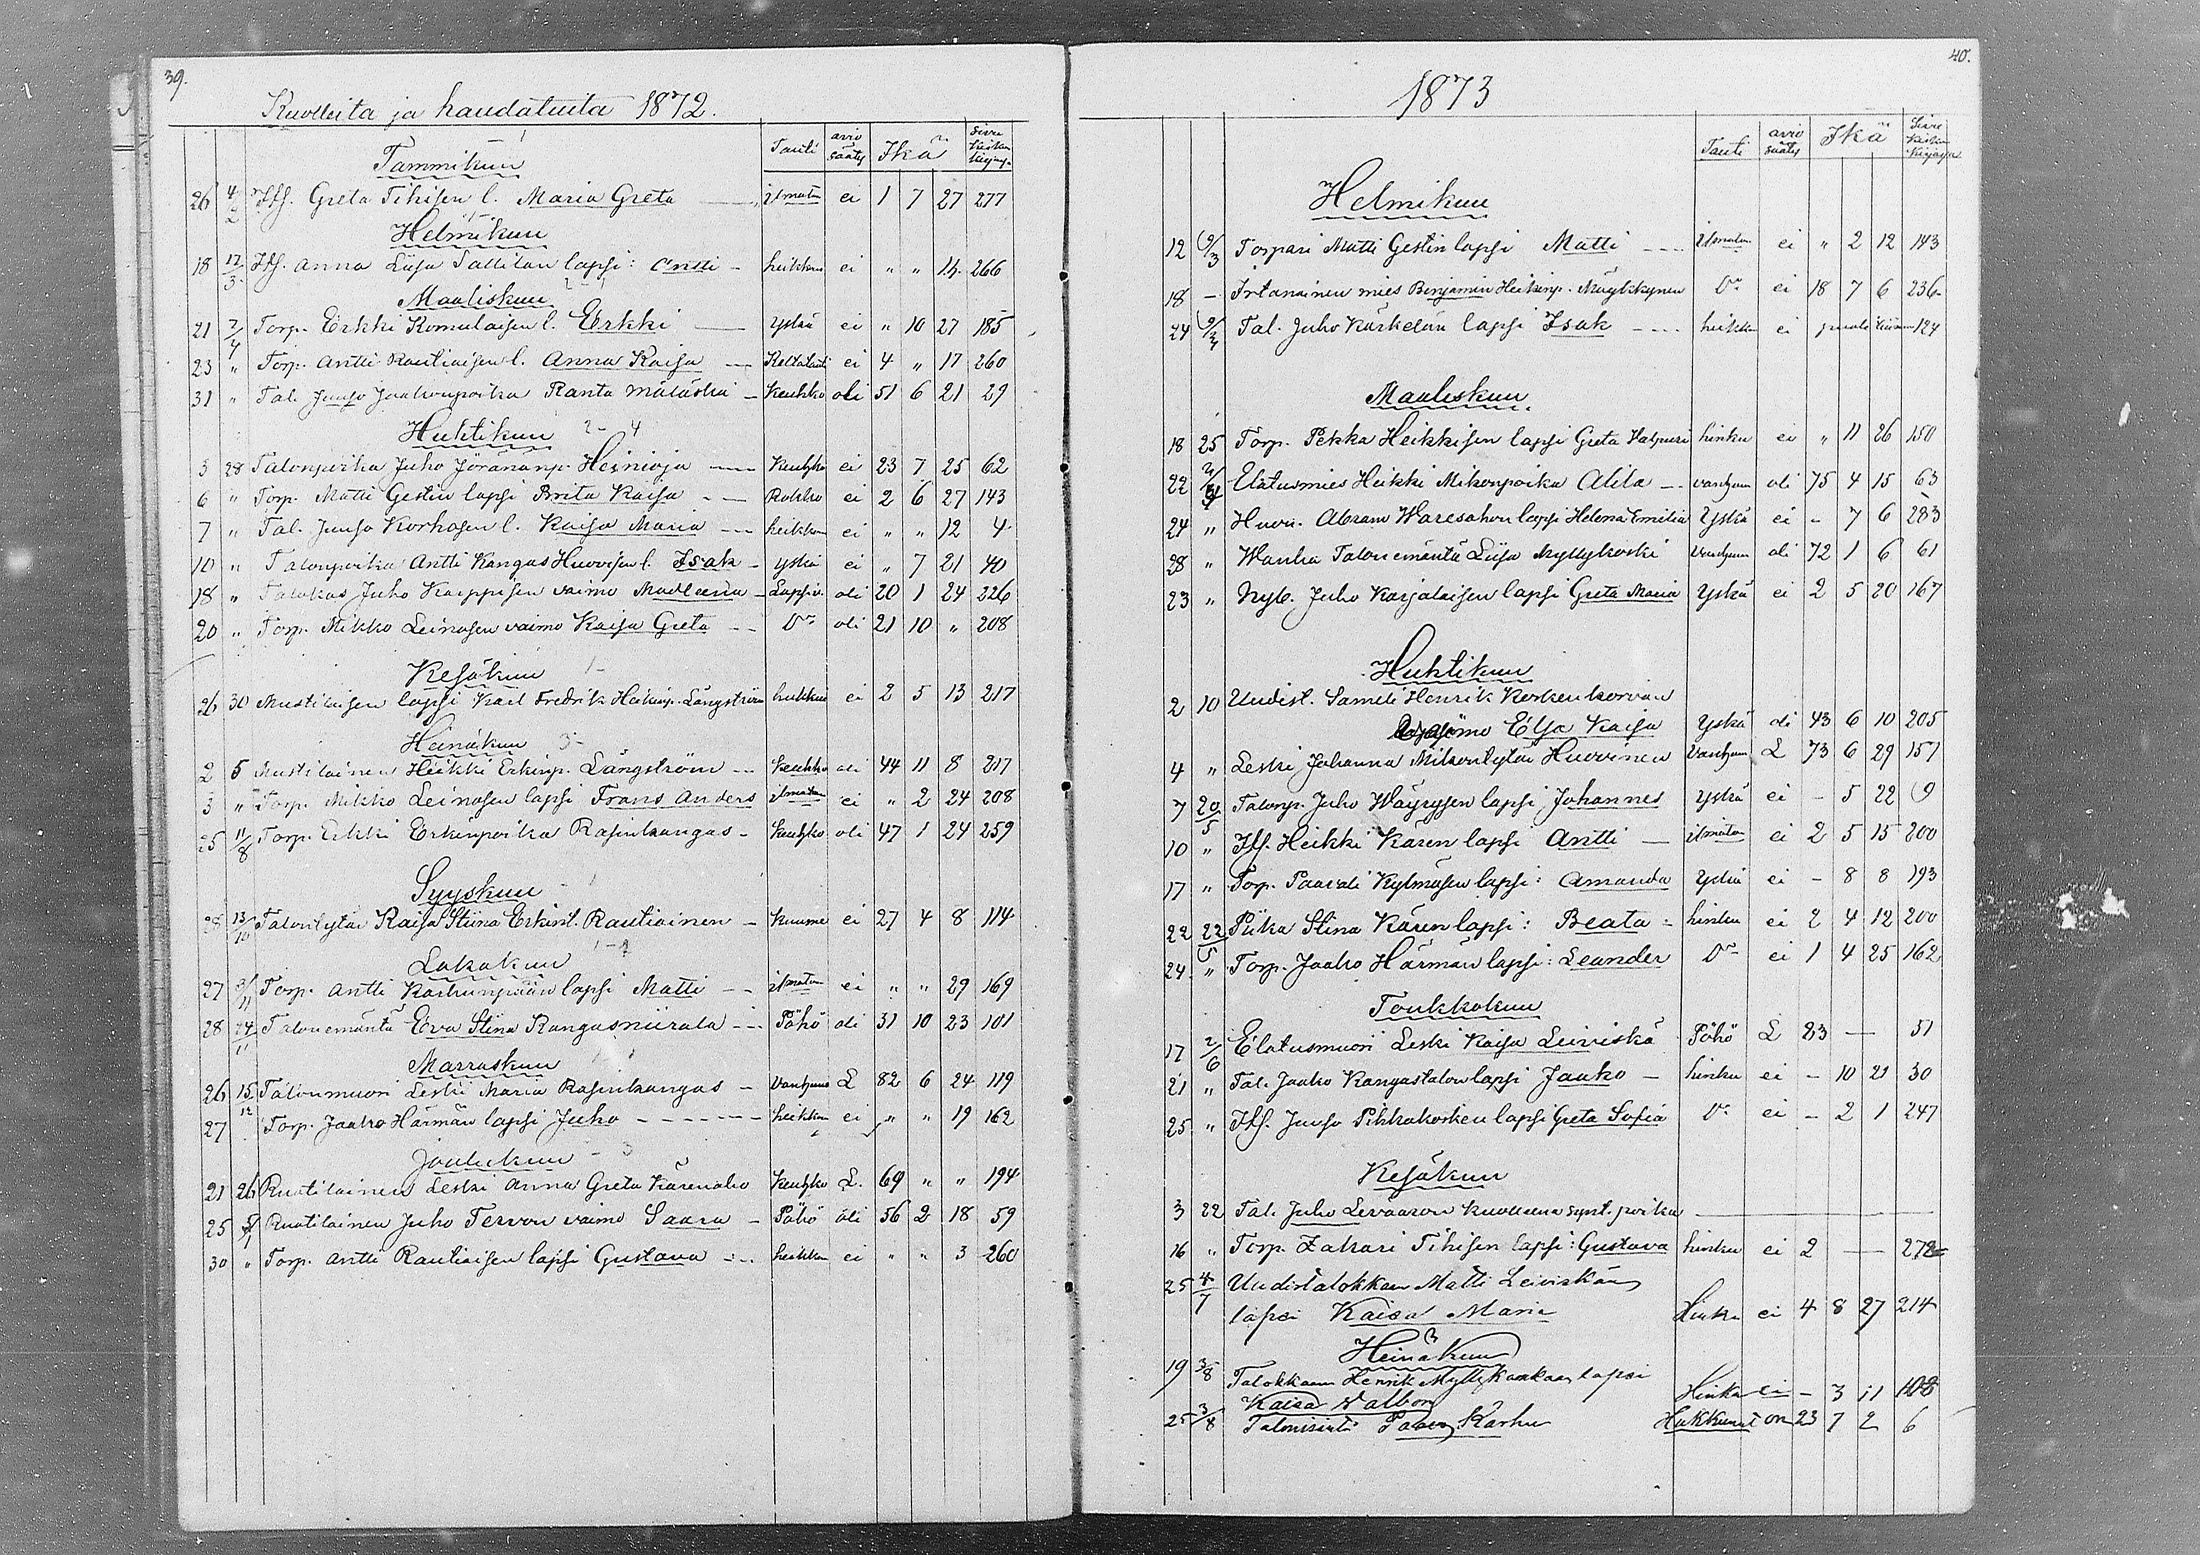 39.
Kuolleita ja haudatuita 1872.
Tauti avio sääty Ikä Sivu Kirkon Kirjasa
Tammikuu
26 4/2 Itf. Greta Tihisen l. Maria Greta — ilmatm ei 1 7 27 277
Helmikuu
18 17/3 Itf. Anna Liisa Tallilan lapsi: Antti - heikkm ei " " 14 266
Maaliskuu
21 7/4 Torp. Erkki Komulaisen l. Erkki — Yskä ei " 10 27 185
23 " Torp. Antti Rautiaisen l. Anna Kaisa — Keltatauti ei 4 " 17 260
31 " Tal. Juuso Jaakonpoika Ranta määttä - Keuhko oli 51 6 21 29
Huhtikuu 2- 4
3 28 Talonpoika Juho Jöranänp. Heinioja — Keuhko ei 23 7 25 62
6 " Torp. Matti Gestin lapsi Brita Kaisa - — Rokko ei 2 6 27 143
7 " Tal. Juuso Korhosen l. Kaisa Maria — heikkm ei " " 12 4
10 " Talonpoika Antti Kangas Huovisen l. Isak - yskä ei " 7 21 40
18 " Talokas Juho Karppisen vaimo Madleena - Lapsiv. oli 20 1 24 226
20 " Torp. Mikko Leinosen vaimo Kaisa Greta - - Do oli 21 10 " 208
Kesäkuu 1-
26 30 Mustilaisen lapsi Karl Fredrik Heikinp. Långström hukkui ei 2 5 13 217
Heinäkuu 3-
2 5 Mustilainen Heikki Erkinp. Långström -- Keuhko oli 44 11 8 217
3 " Torp. Mikko Leinosen lapsi Frans Anders ilmatm ei " 2 24 208
25 11/8 Torp. Erkki Erkinpoika Rasinkangas - Keuhko oli 47 1 24 259
Syyskuu
28 13/10 Talontytär Kaisa Stiina Erkint. Rautiainen - Kuume ei 27 4 8 114
Lokakuu
27 3/11 Torp. Antti Karhunpään lapsi Matti - - ilmatm ei " " 29 169
28 24/11 Talonemäntä Eeva Stina Kangasniirala -- Pöhö oli 31 10 23 101
Marraskuu
26 15/12 Talonmuori Leski Maria Rasinkangas - Vanhuus L 82 6 24 119
27 Torp. Jaako Härmän lapsi Juho - - - - - heikkm ei " " 19 162
Joulukuu - 3
21 26 Ruotilainen Leski Anna Greta Kärenaho Keuhko L. 69 " " 194
25 5/1 Ruotilainen Juho Tervon vaimo Saara - Pöhö oli 56 2 18 59
30 " Torp. Antti Rautiaisen lapsi Gustava -- heikkm ei " " 3 260
40.
1873
Tauti avio sääty Ikä Sivu Kirkon Kirjasa
Helmikuu
12 9/3 Torpari Matti Gestin lapsi Matti - - - ilmatm ei " 2 12 143
18 - Irtanainen mies Benjamin Heikinp. Do ei 18 7 6 236
24 9/3 Tal. Juho Kärkelän lapsi Isak - - - heikkm ei puoli 124
Maaliskuu
18 25 Torp. Pekka Heikkisen lapsi Greta Valpuri hinku ei " 11 26 150
22 Elatusmies Heikki Mikonpoika Alila -- vanhuus oli 75 4 15 63
24 " Huon. Abram Waresahon lapsi Helena Emilia Yskä ei - 7 6 283
28 " Wanha Talonemäntä Liisa Myllykoski Vanhuus oli 72 1 6 61
23 " Nyb. Juho Karjalaisen lapsi Greta Maria Yskä ei 2 5 20 167
Huhtikuu
2 10 Uudist. Samuli Henrik Koskenkorvan
vaimo Elsa Kaisa Yskä oli 43 6 10 205
4 " Leski Johanna Mikontytär Huovinen Vanhuus L 73 6 29 157
7 20/5 Talonp. Juho Wäyrysen lapsi Johannes Yskä ei - 5 22 9
10 " Itf. Heikki Kären lapsi Antti — ilmatm ei 2 5 15 200
17 " Torp. Paavali Kylmäsen lapsi: Amanda Yskä ei - 8 8 193
22 22/5 Piika Stina Kären lapsi: Beata - hinku ei 2 4 12 200
24. " Torp. Jaako Härmän lapsi: Leander Do ei 1 4 25 162
Toukkokuu
17 2/6 Elatusmuori Leski Kaisa Leiviskä Pöhö L 83 — 51
21 " Tal. Jaako Kangastalon lapsi Jaako - hinku ei - 10 21 30
25. " Itf. Juuso Pihkakosken lapsi Greta Sofia Do ei - 2 1 247
Kesäkuu
3 22 Tal. Juho Leväason kuolleena synt. poika —
16 " Torp. Zakari Tihisen lapsi: Gustava hinku ei 2 — 278
25 4/7 Uudistalokkaan Matti Leiviskän
lapsi Kaisa Maria Hinku ei 4 8 27 214
Heinäkuu
19 3/8 Talokkaan Henrik Myllykankaan lapsi
Kaisa Valbor Hinku ei - 3 11 108
25 3/8 Talonisäntä Paavo Karhu Hukkunut on 23 7 2 6